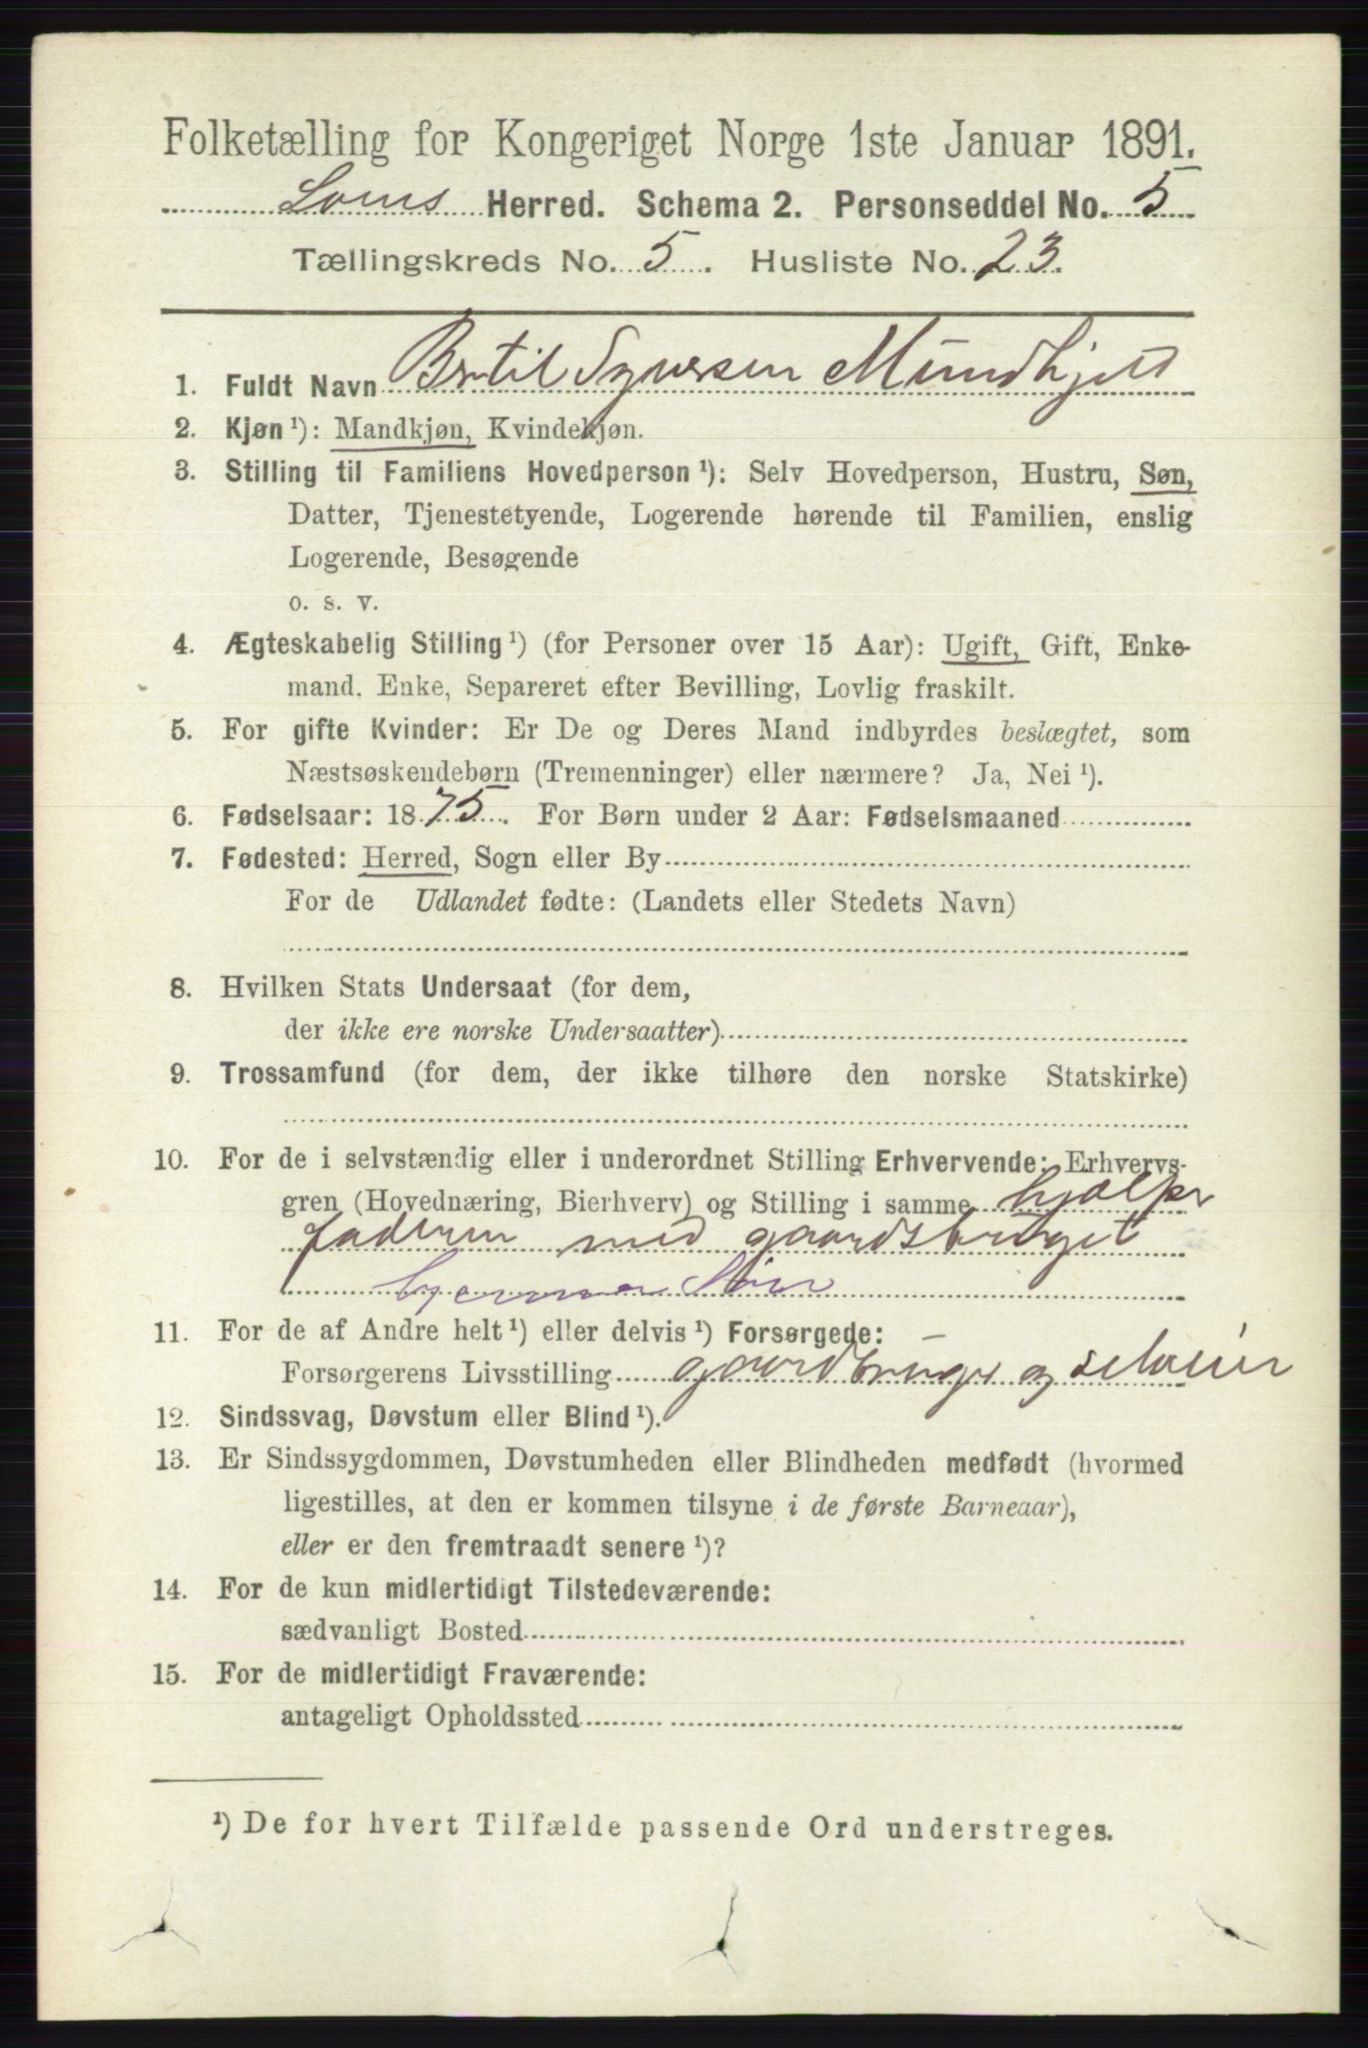 Folketælling for Kongeriget Norge 1ste Januar 1891.
Loms Herred. Schema 2. Personseddel No. 5
Tællingskreds No. 5. Husliste No. 23.
1. Fuldt Navn Bertil Syversen Mundhjeld
2. Kjøn ¹): Mandkjøn, Kvindekjøn.
3. Stilling til Familiens Hovedperson ¹): Selv Hovedperson, Hustru, Søn,
Datter, Tjenestetyende, Logerende hørende til Familien, enslig
Logerende, Besøgende
o. s. v.
4. Ægteskabelig Stilling ¹) (for Personer over 15 Aar): Ugift, Gift, Enke-
mand, Enke, Separeret efter Bevilling, Lovlig fraskilt.
5. For gifte Kvinder: Er De og Deres Mand indbyrdes beslægtet, som
Næstsøskendebørn (Tremenninger) eller nærmere? Ja, Nei ¹).
6. Fødselsaar: 1875. For Børn under 2 Aar: Fødselsmaaned
7. Fødested: Herred, Sogn eller By
For de Udlandet fødte: (Landets eller Stedets Navn)
8. Hvilken Stats Undersaat (for dem,
der ikke ere norske Undersaatter)
9. Trossamfund (for dem, der ikke tilhøre den norske Statskirke)
10. For de i selvstændig eller i underordnet Stilling Erhvervende: Erhvervs-
gren (Hovednæring, Bierhverv) og Stilling i samme hjælper
faderen med gaardsbruget
hjemmeværende
11. For de af Andre helt ¹) eller delvis ¹) Forsørgede:
Forsørgerens Livsstilling gaardbruger og selveier
12. Sindssvag, Døvstum eller Blind ¹).
13. Er Sindssygdommen, Døvstumheden eller Blindheden medfødt (hvormed
ligestilles, at den er kommen tilsyne i de første Barneaar),
eller er den fremtraadt senere ¹)?
14. For de kun midlertidigt Tilstedeværende:
sædvanligt Bosted
15. For de midlertidigt Fraværende:
antageligt Opholdssted
¹) De for hvert Tilfælde passende Ord understreges.